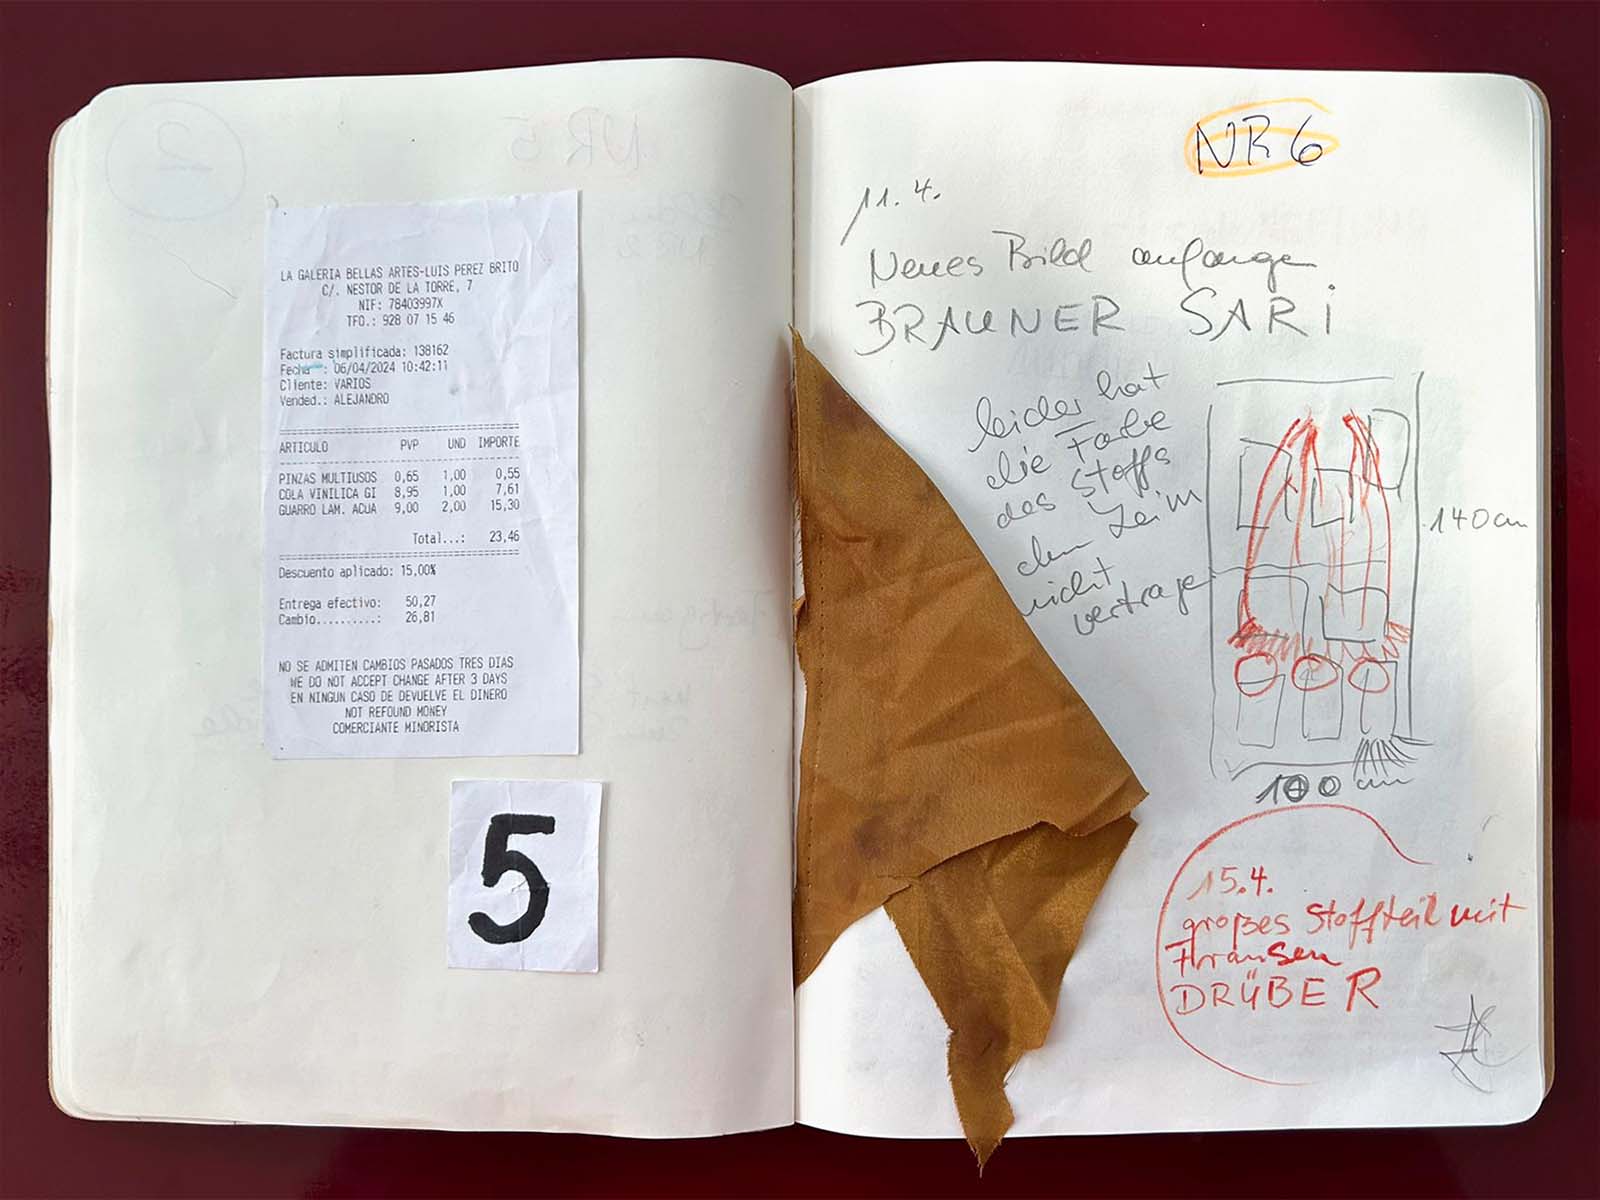 LA GALERIA BELLAS ARTES-LUIS PEREZ BRITO
C/. NESTOR DE LA TORRE, 7
NIF: 78403997X
TFO.: 928 07 15 46
Factura simplificada: 138162
Fecha : 06/04/2024 10:42:11
Cliente: VARIOS
Vended.: ALEJANDRO
ARTICULO PVP UND IMPORTE
PINZAS MULTIUSOS 0,65 1,00 0,55
COLA VINILICA GI 8,95 1,00 7,61
GUARRO LAM. ACUA 9,00 2,00 15,30
Total...: 23,46
Descuento aplicado: 15,00%
Entrega efectivo: 50,27
Cambio..........: 26,81
NO SE ADMITEN CAMBIOS PASADOS TRES DIAS
WE DO NOT ACCEPT CHANGE AFTER 3 DAYS
EN NINGUN CASO DE DEVUELVE EL DINERO
NOT REFOUND MONEY
COMERCIANTE MINORISTA
5
NR 6
11.4.
Neues Bild anfange
BRAUNER SARI
leider hat
die Farbe
des Stoffs
den Leim
nicht
vertrage
140 cm
100 cm
15.4.
großes Stoffteil mit
Fransen
DRÜBER
2
NR 5